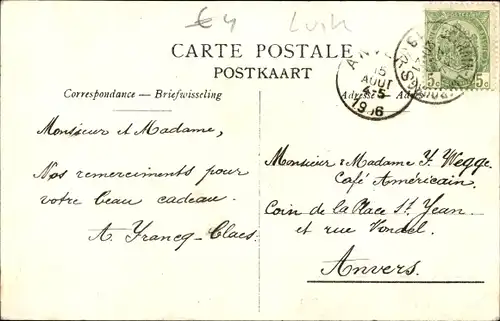 €4 Luik
CARTE POSTALE
POSTKAART
Correspondance — Briefwisseling
Adresse — Ad
5c 5c
15
AOUT
4-5
1906
Monsieur et Madame,
Nos remerciments pour
votre beau cadeau.
A. Francq-Claes.
Monsieur & Madame F. Wegge
Café Américain.
Coin de la Place St. Jean
et rue Vondel.
Anvers.